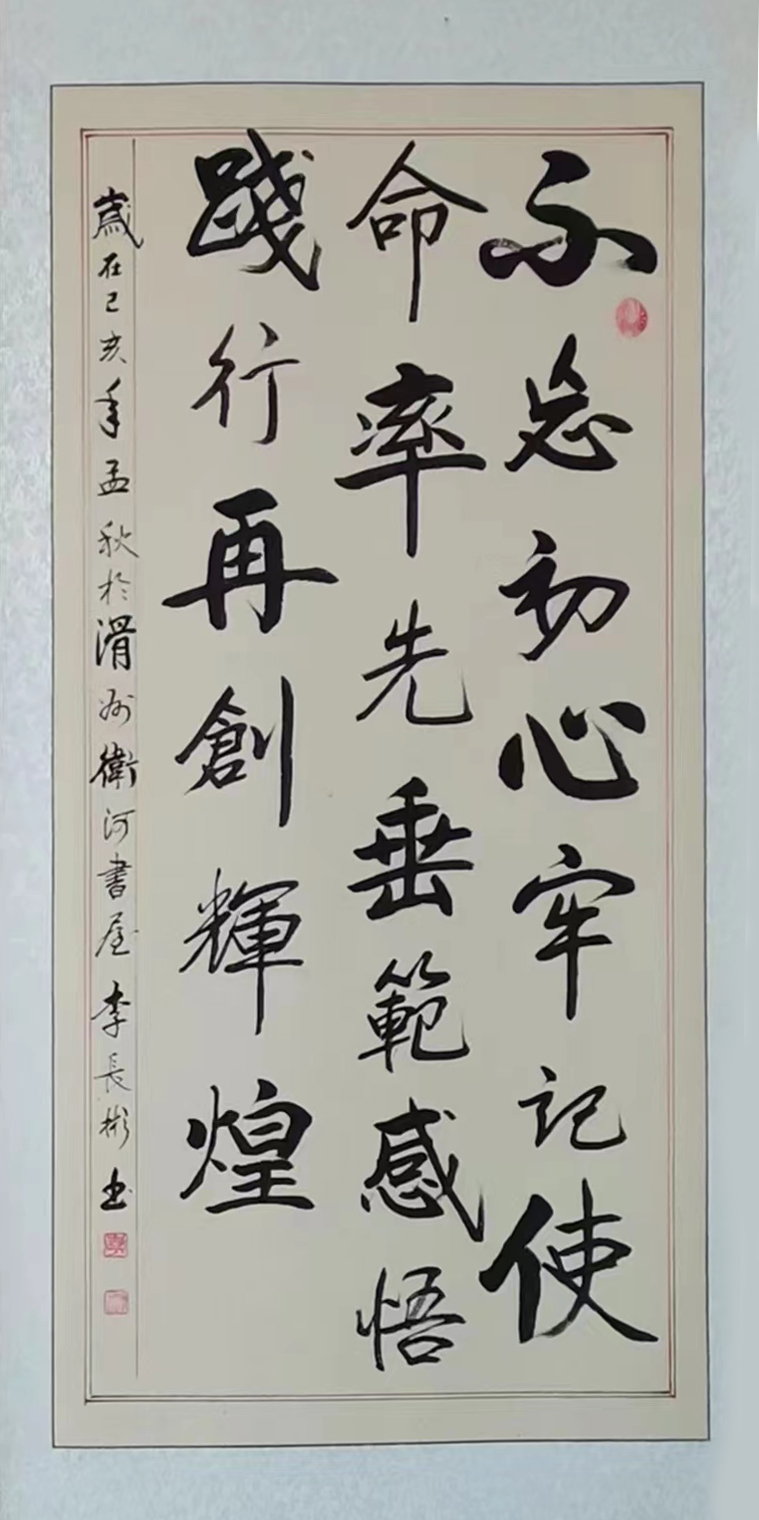 不忘初心牢記使
命率先垂範感悟
踐行再創輝煌
歲在己亥年孟秋於滑州衛河書屋李長彬书